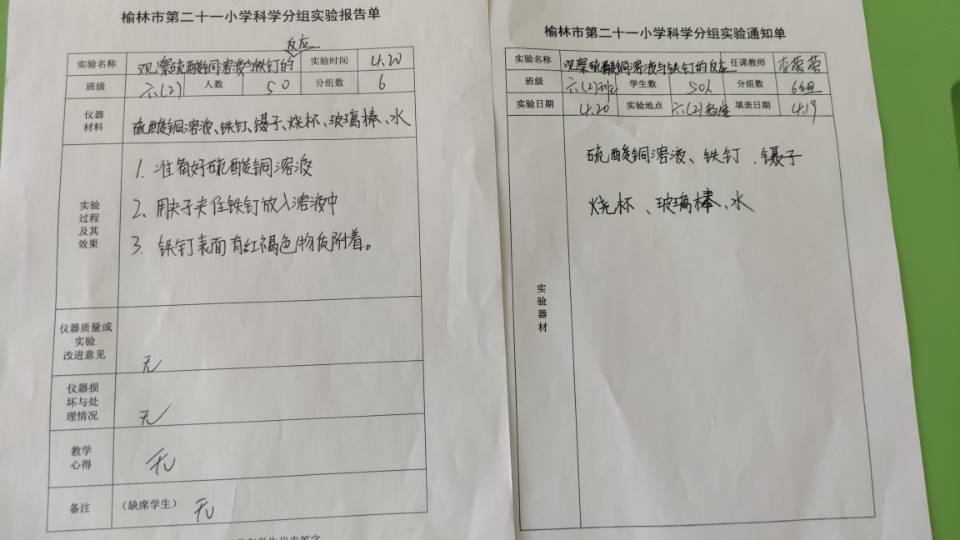 榆林市第二十一小学科学分组实验报告单
反应
实验名称 观察硫酸铜溶液与铁钉的 实验时间 4.20
班级 六(2) 人数 50 分组数 6
仪器
材料
硫酸铜溶液、铁钉、镊子、烧杯、玻璃棒、水
实验
过程
及其
效果
1. 准备好硫酸铜溶液
2、用夹子夹住铁钉放入溶液中
3. 铁钉表面有红褐色物质附着。
仪器质量或
实验
改进意见
无
仪器损
坏与处
理情况
无
教学
心得
无
备注 (缺席学生) 无
榆林市第二十一小学科学分组实验通知单
实验名称 观察硫酸铜溶液与铁钉的反应 任课教师
班级 六(2) 学生数 50人 分组数 6组
实验日期 4.20 实验地点 六(2)教室 填表日期 4.19
硫酸铜溶液、铁钉、镊子
烧杯、玻璃棒、水
实验器材